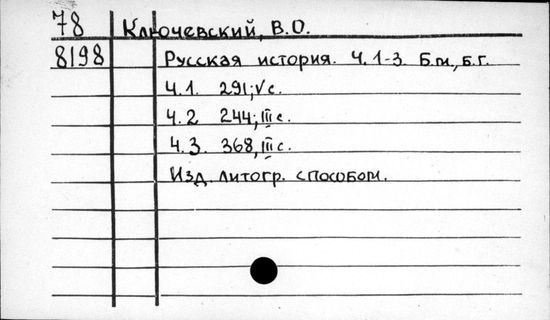 78 Ключевский, В.О.
8198 Русская история. Ч.1-3. Б.м., б.г.
Ч.1. 291; V с.
Ч.2 244; III с.
Ч.3. 368, III с.
Изд. литогр. способом.